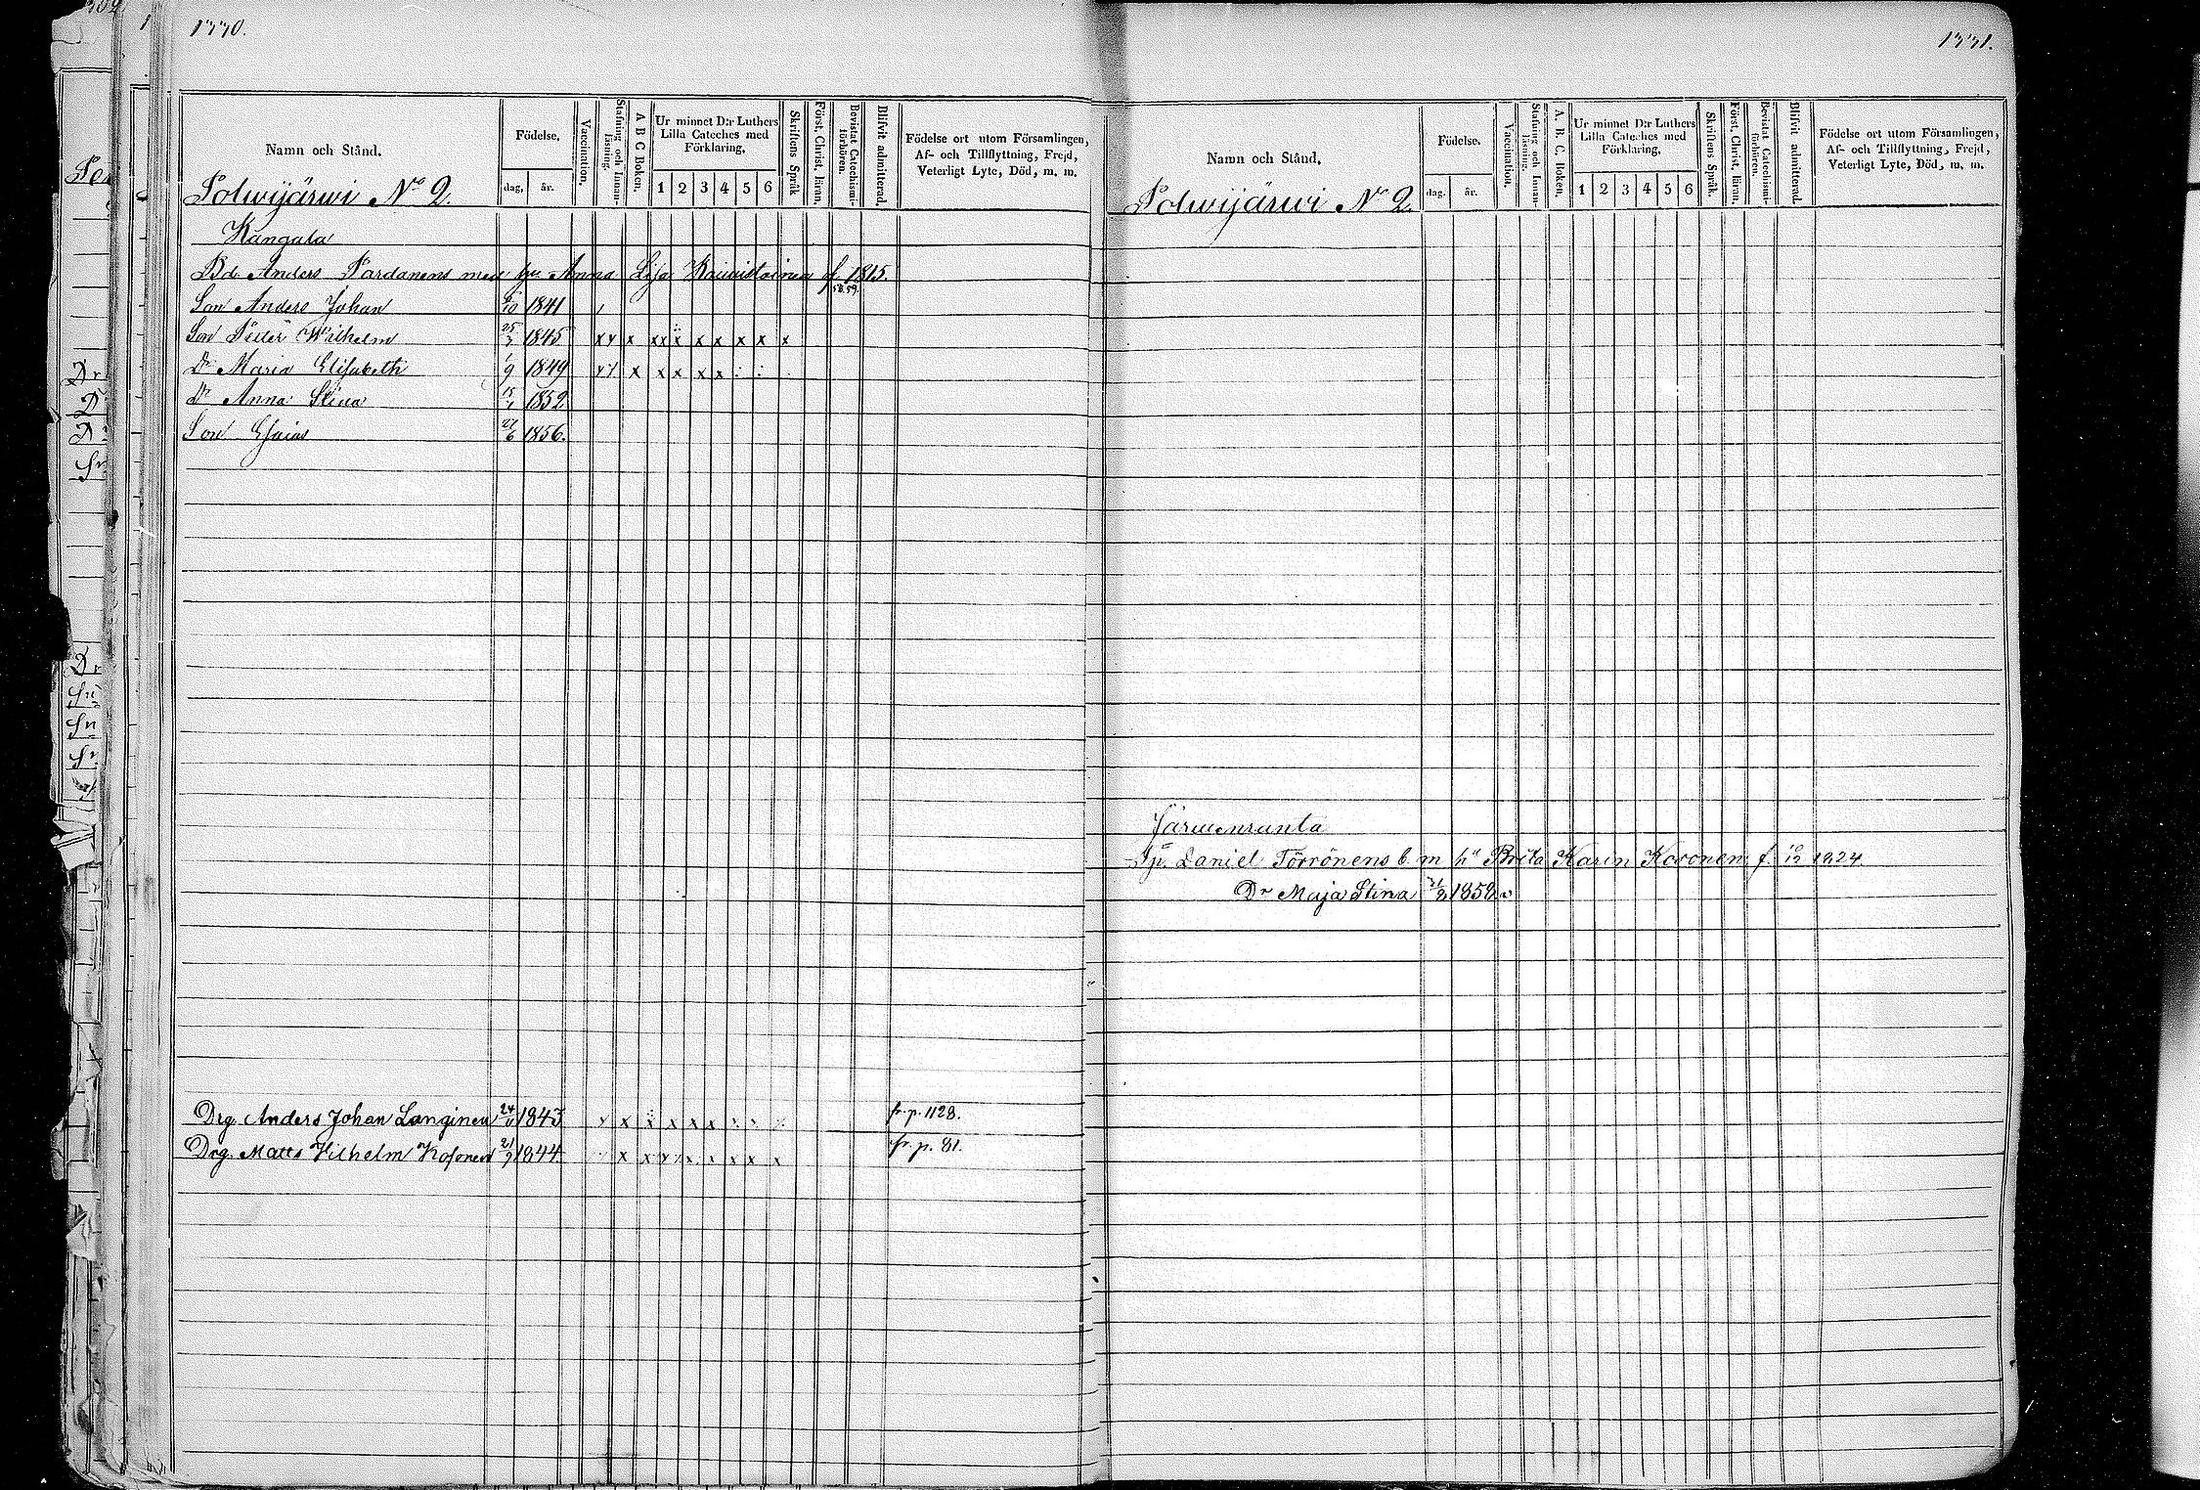 1330.
Namn och Stånd.
Födelse.
dag, år.
Vaccination.
Stafning och Innan-läsning.
A B C Boken.
Ur minnet D:r Luthers Lilla Cateches med Förklaring.
1 2 3 4 5 6
Skriftens Språk
Först. Christ. läran.
Bevistat Catechismi-förhören.
Blifvit admitterad.
Födelse ort utom Församlingen,
Af- och Tillflyttning, Frejd,
Veterligt Lyte, Död, m. m.
Polwijärwi No 2.
Kangala
Bd. Anders Pardanens med hu Anna Lisa f. 1815.
58.59.
Son Anders Johan 10 1841
Son Petter Wilhelm 25 1845 x x x x x x x x x x x
Dr Maria Elisabeth 1/9 1849 x x x x x x
Dr Anna Stina 1852
Son Esaias 6 1856.
Drg. Anders Johan Langinen 24 1843 x x x x x x fr. p. 1128.
Drg. Matts Vilhelm Kosonen 21/9 1844 x x x x x x x x fr. p. 81.
1331.
Namn och Stånd.
Födelse.
dag. år.
Vaccination.
Stafning och Innan-läsning.
A. B. C. Boken.
Ur minnet D:r Luthers Lilla Cateches med Förklaring.
1 2 3 4 5 6
Skriftens Språk.
Först. Christ. läran.
Bevistat Catechismi-förhören.
Blifvit admitterad.
Födelse ort utom Församlingen,
Af- och Tillflyttning, Frejd,
Veterligt Lyte, Död, m. m.
Polwijärwi No 2.
Järwenranta
Daniel Törrönens b m hu Brita Karin Kovonen f. 10/12 1824
Dr Maja Stina 1852